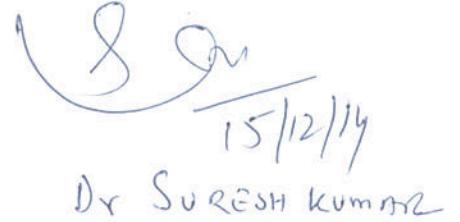 15/12/14
Dr SURESH KUMAR